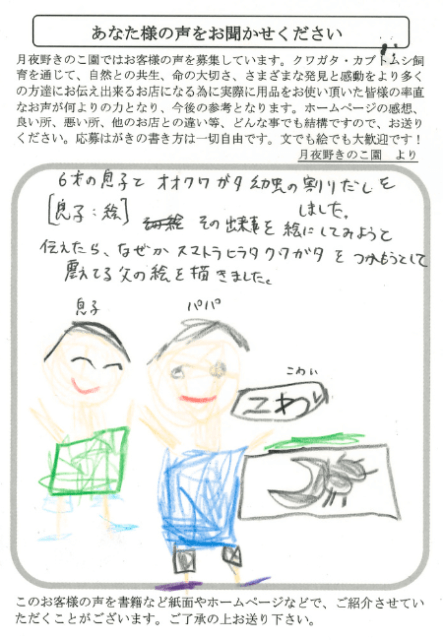 あなた様の声をお聞かせください
月夜野きのこ園ではお客様の声を募集しています。クワガタ・カブトムシ飼
育を通じて、自然との共生、命の大切さ、さまざまな発見と感動をより多く
の方達にお伝え出来るお店になる為に実際に用品をお使い頂いた皆様の率直
なお声が何よりの力となり、今後の参考となります。ホームページの感想、
良い所、悪い所、他のお店との違い等、どんな事でも結構ですので、お送り
ください。応募はがきの書き方は一切自由です。文でも絵でも大歓迎です！
月夜野きのこ園　より
6才の息子と オオクワガタ幼虫の割りだしを
しました。
[息子：絵] その出来事を絵にしてみようと
伝えたら、なぜか スマトラヒラタクワガタ をつかもうとして
震えてる父の絵を描きました。
息子
パパ
こわい
こわい
このお客様の声を書籍など紙面やホームページなどで、ご紹介させてい
ただくことがございます。ご了承の上お送り下さい。